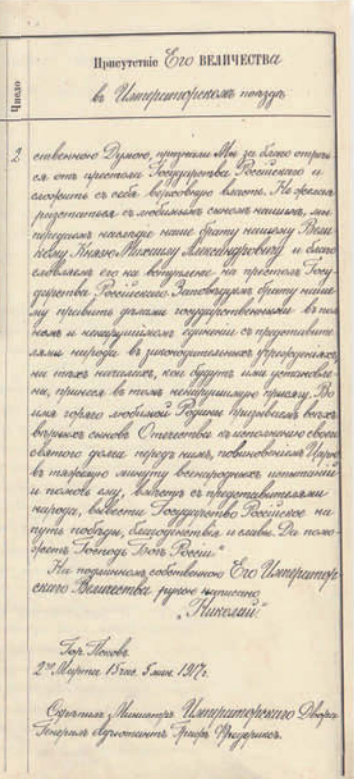 Присутствіе Его ВЕЛИЧЕСТВА
въ Императорскомъ поѣздѣ
Число
2
ственною Думою, признали Мы за благо отречь
ся отъ престола Государства Россійскаго и
сложить съ себя верховную власть. Не желая
разстаться съ любимымъ сыномъ нашимъ, мы
передаемъ наслѣдіе наше брату нашему Вели
кому Князю Михаилу Александровичу и благо
словляемъ его на вступленіе на престолъ Госу
дарства Россійскаго. Заповѣдуемъ брату наше
му править дѣлами государственными въ пол
номъ и ненарушимомъ единеніи съ представите
лями народа въ законодательныхъ учрежденіяхъ,
на тѣхъ началахъ, кои будутъ ими установле
ны, принеся въ томъ ненарушимую присягу. Во
имя горячо любимой Родины призываемъ всѣхъ
вѣрныхъ сыновъ Отечества къ исполненію своего
святого долга передъ нимъ, повиновеніемъ Царю
въ тяжелую минуту всенародныхъ испытаній
и помочь ему, вмѣстѣ съ представителями
народа, вывести Государство Россійское на
путь побѣды, благоденствія и славы. Да помо
жетъ Господь Богъ Россіи."
На подлинномъ собственною Его Император
скаго Величества рукою написано
„Николай."
Гор. Псковъ.
2го Марта 15 час. 5 мин. 1917 г.
Скрѣпилъ Министръ Императорскаго Двора
Генералъ Адъютантъ Графъ Фредериксъ.